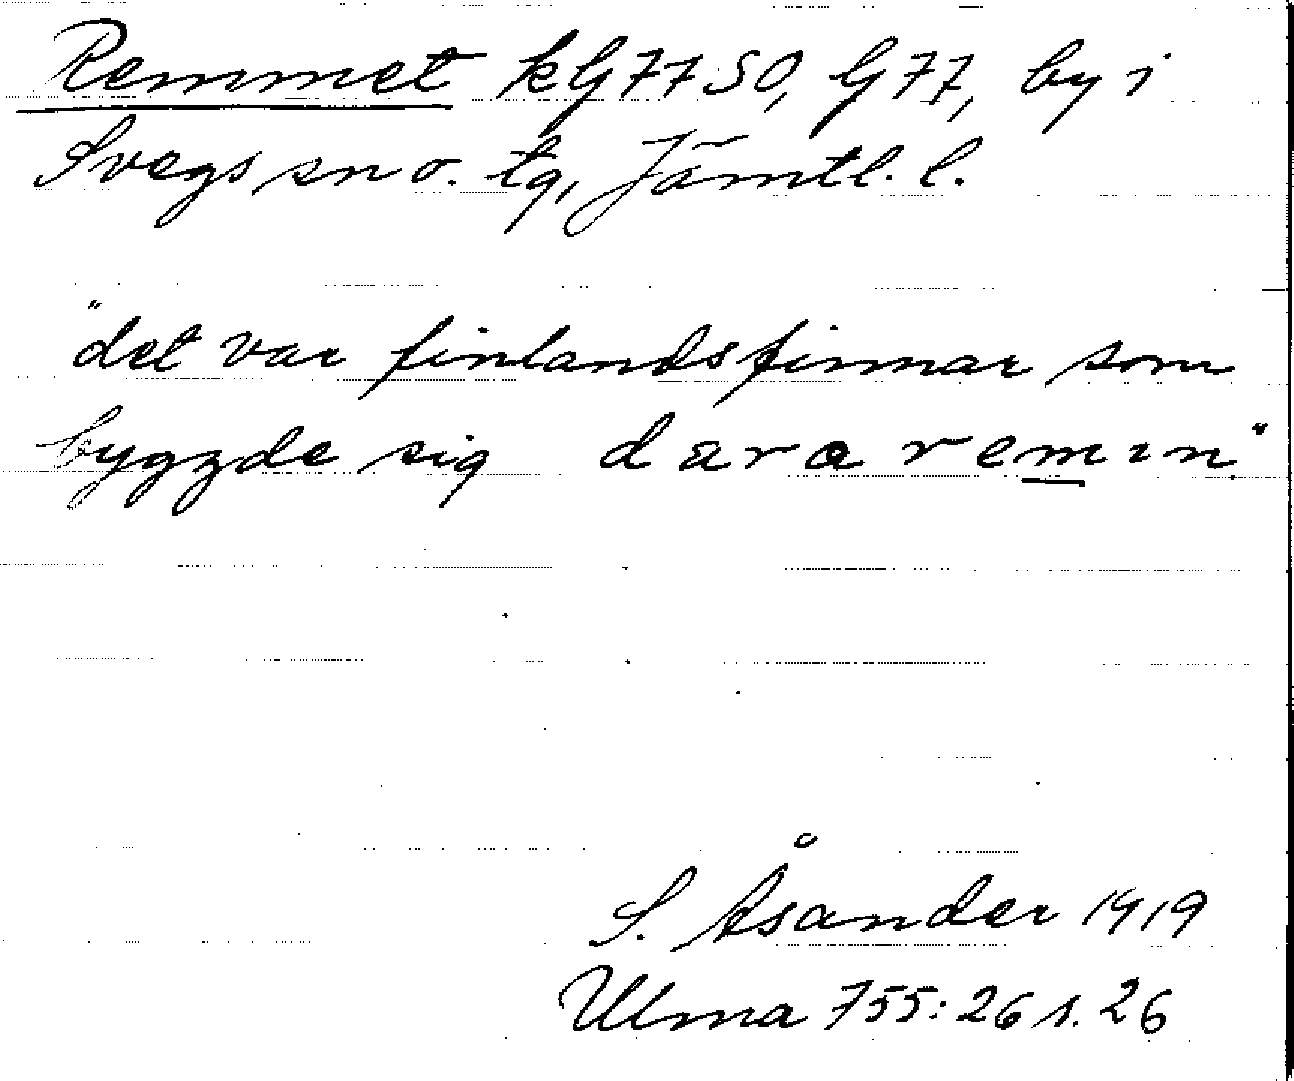 Remmet kG7750, G77, by i
Svegs sn o. tg, Jämtl. l.
"det var finlandsfinnar som
byggde sig dara remin."
S. Åsander 1919
Ulma 755:26 s. 26